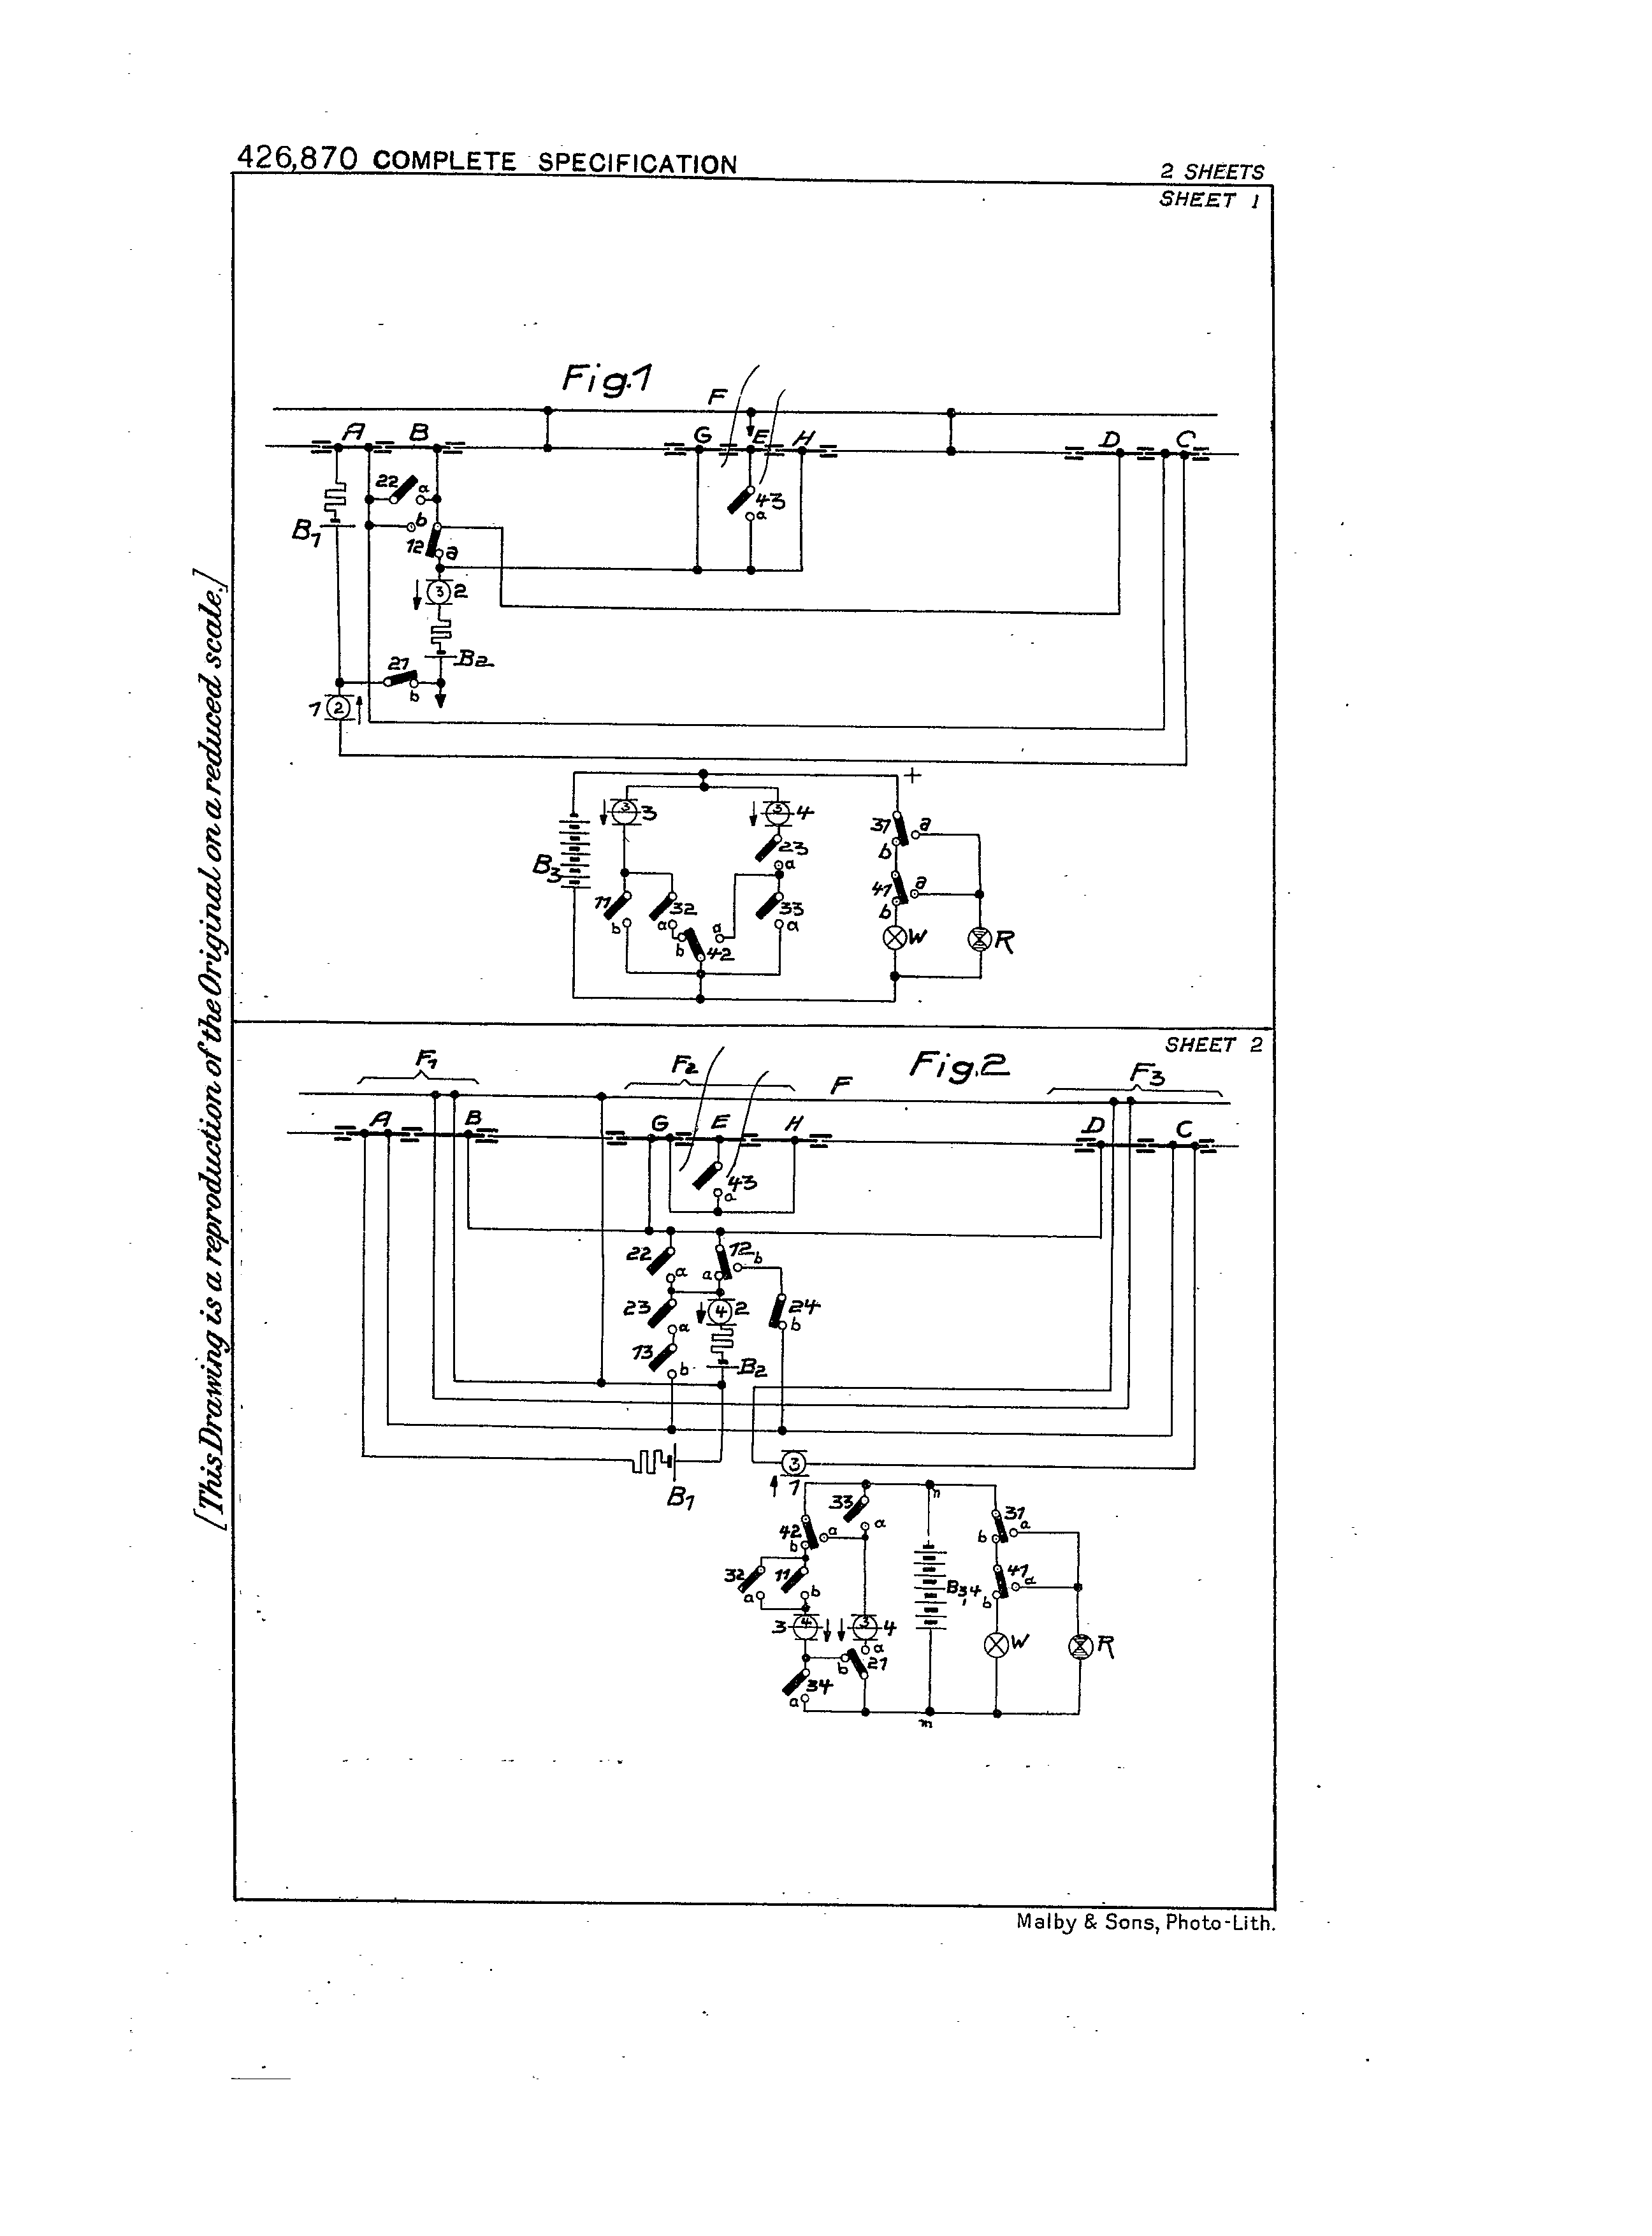 426,870 COMPLETE SPECIFICATION
2 SHEETS
SHEET 1
[This Drawing is a reproduction of the Original on a reduced scale.]
Fig.1
F
A B G E H D C
22 a
43
a
B1
b
12 a
3 2
B2
21
b
1 2
+
3 3
3 4
37 a
b
23
a
B3
41 a
b
11
b
32
a
33
a
b a
42
W
R
SHEET 2
Fig.2
F1 F2 F F3
A B G E H D C
43
a
22
a
12 b
a
23
a
4 2
24
b
13
b
B2
B1
3
1
n
33
a
42 a
b
31
a
b
32
a
11
b
B3,4
41
a
b
3 4
3 4
W
R
a
b 21
34
a
m
Malby & Sons, Photo-Lith.